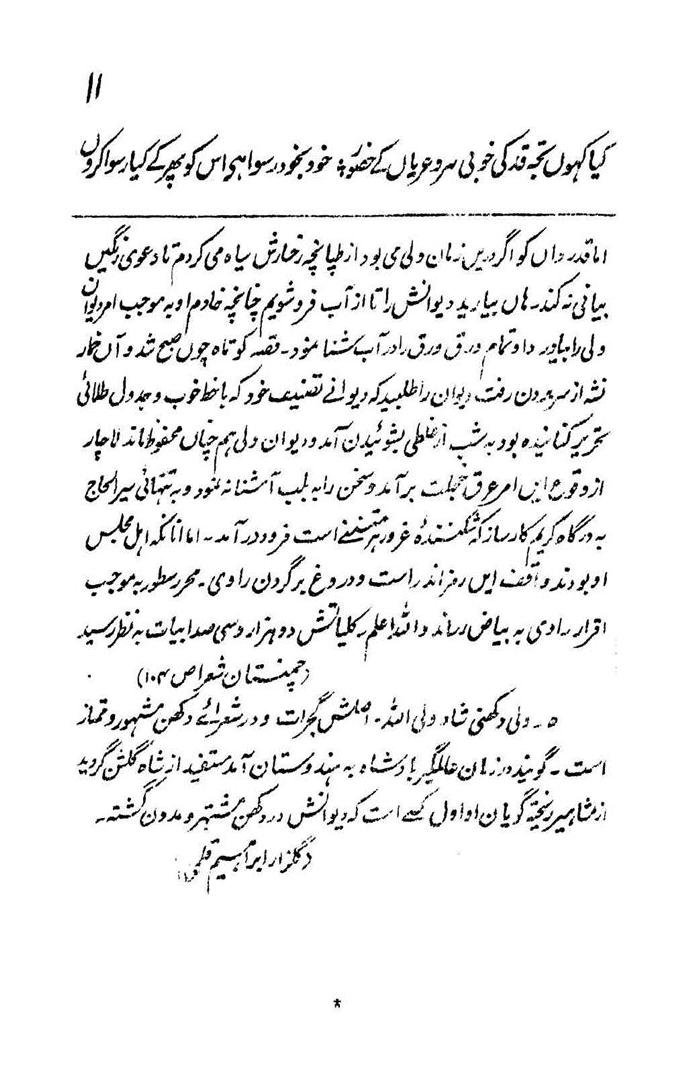 ۱۱
کیا کہوں تجھ قد کی خوبی سرو عریاں کے حضور خود بخود رسوا ہی اس کو پھر کے کیا رسوا کروں
اما قدرداں کو اگر دریں زمان ولی می بود از طپانچہ رخارش سیاہ می کردم تا دعوی رنگیں
بیانی نہ کند۔ ہاں بیارید دیوانش را تا از آب فرو شویم چنانچہ خادم او بہ موجب امر دیوان
ولی را بیاورد و تمام ورق ورق را در آب شنا نمود۔ قصہ کوتاہ چوں صبح شد و آن خمار
نشہ از سر بدن رفت دیوان را طلبید کہ دیوانے تصنیف خود کہ با خط خوب و جدول طلائی
تحریر کنانیدہ بود بہ شب از غلطی بشوئیدن آمد و دیوان ولی ہم چناں محفوظ ماند لاچار
از وقوع ایں امر عرق خجلت بر آمد و سخن را بہ لب آشنا نہ نمود و بہ تنہائی سیر الحاج
بہ درگاہ کریم کارساز کہ شکنندۂ غرور ہر متنفسے است فرود در آمد۔ اما انانکہ اہل مجلس
او بودند واقف ایں رمز اند راست و دروغ بر گردن راوی۔ محرر سطور بہ موجب
اقرار راوی بہ بیاض رساند واللہ اعلم کلیاتش دو ہزار و سی صد ابیات بہ نظر رسید
(چمنستان شعرا ص ۱۰۴)
۵۔ ولی دکھنی شاہ ولی اللہ۔ اصلش گجرات و در شعرائے دکھن مشہور و ممتاز
است۔ گویند در زمان عالمگیر بادشاہ بہ ہندوستان آمد مستفید از شاہ گلشن گردید
از مشاہیر ریختہ گویان او اول کسے است کہ دیوانش در دکھن مشتہر و مدون گشتہ۔
(گلزار ابراہیم قلمی)
*